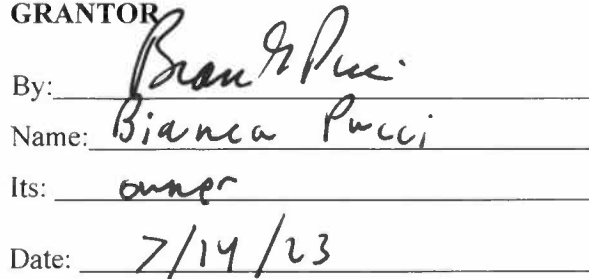 GRANTOR
By:
Name: Bianca Pucci
Its: owner
Date: 7/14/23